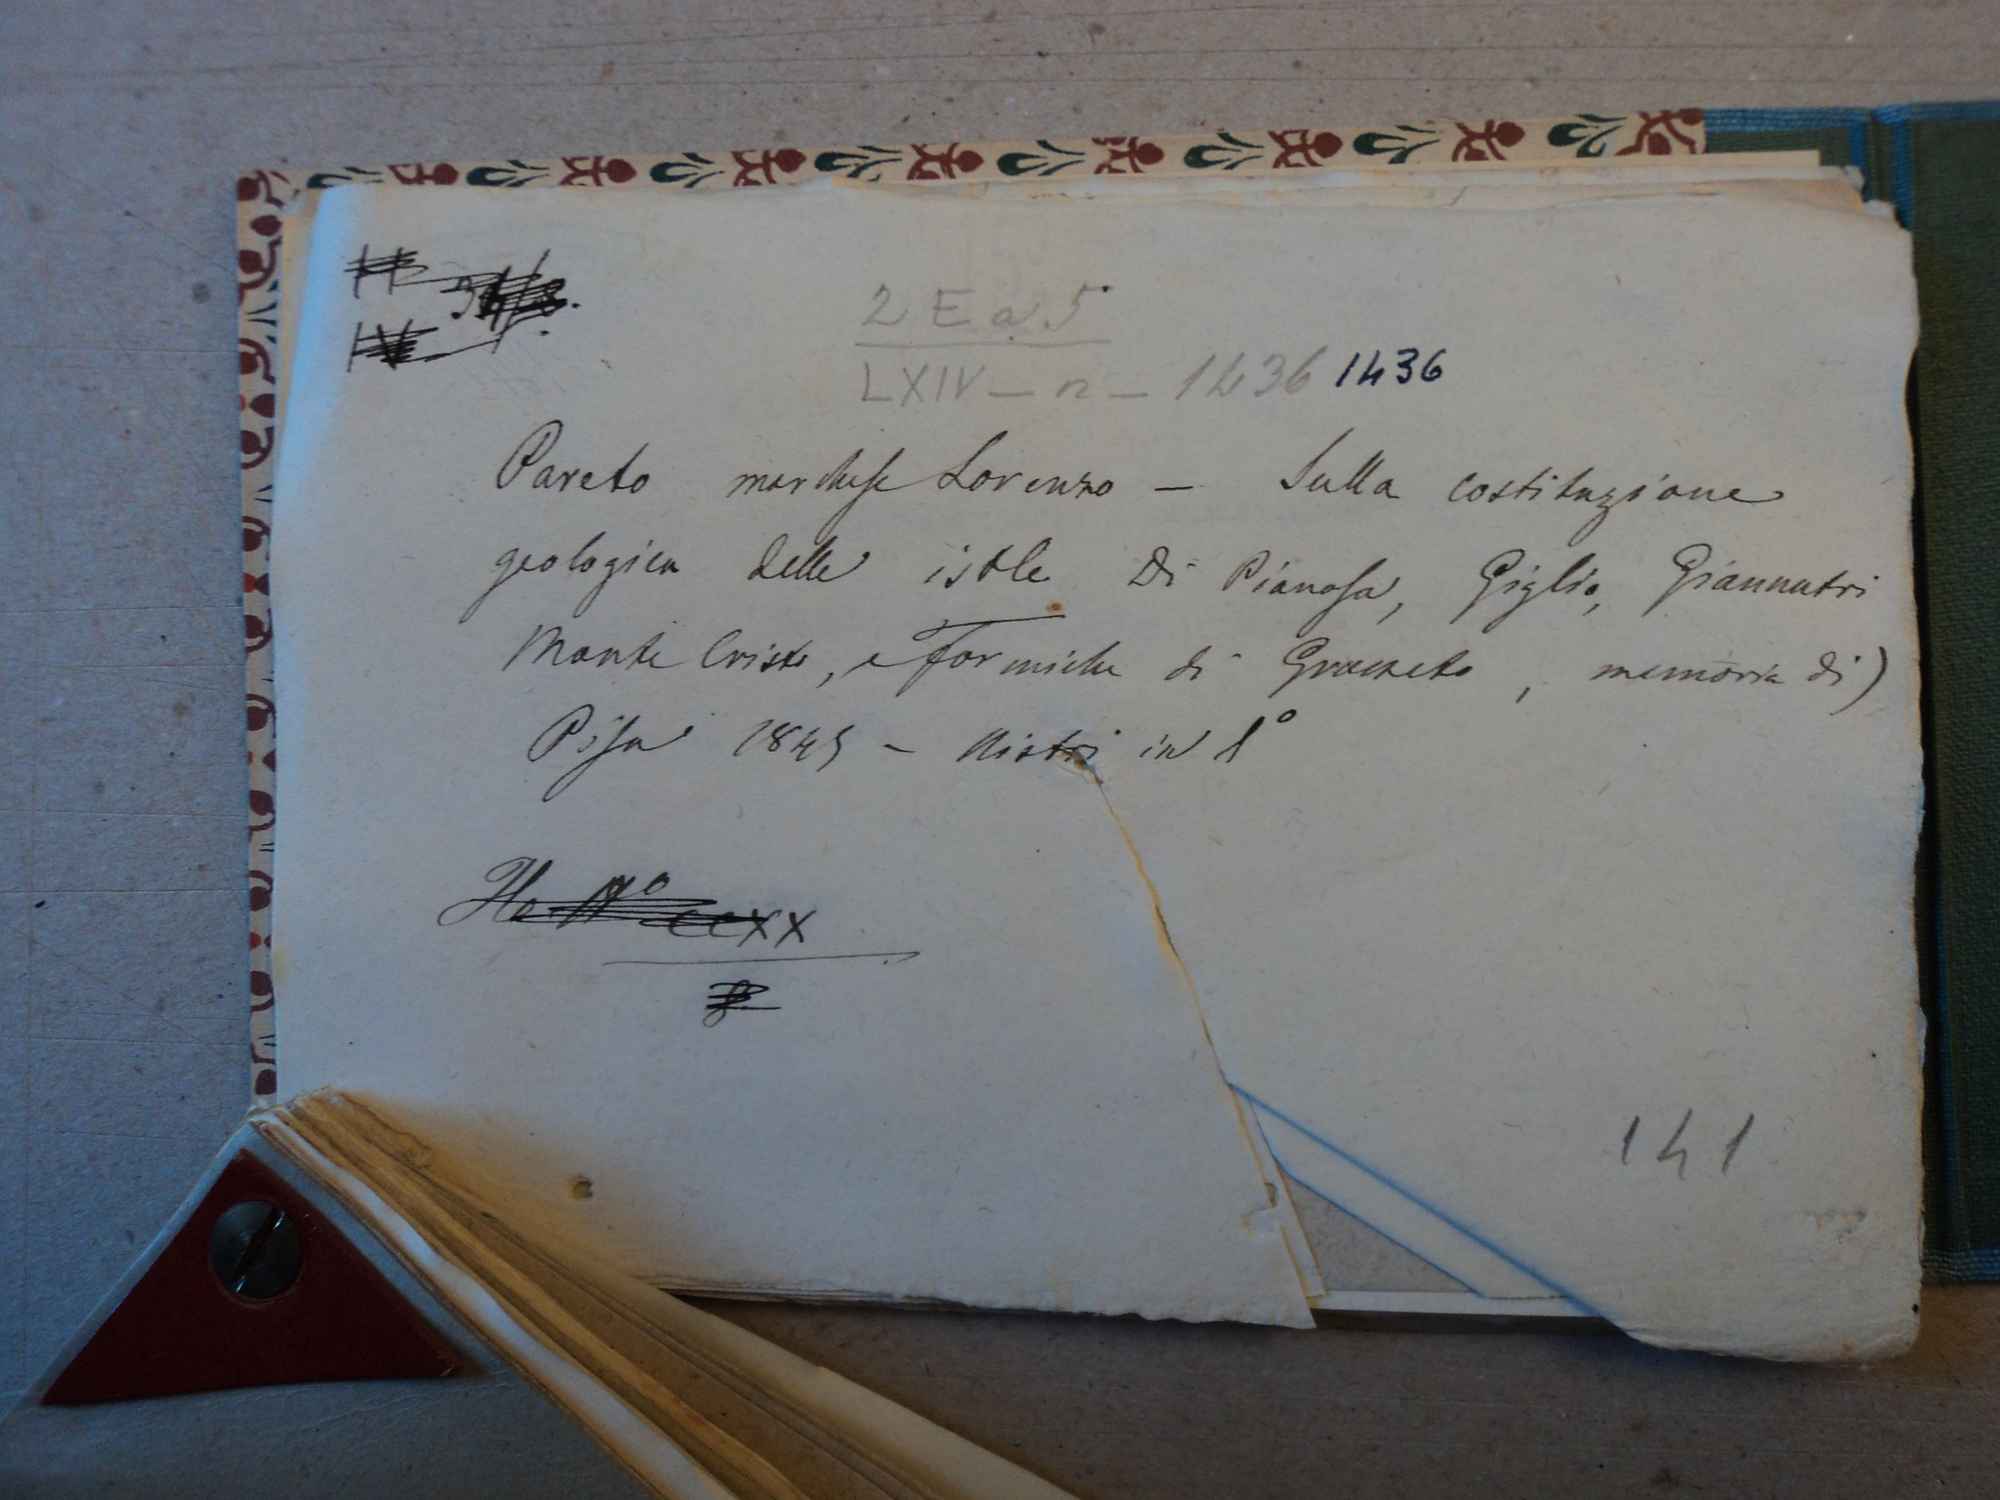 2 E a 5
LXIV - n - 1436 1436
Pareto marchese Lorenzo - Sulla costituzione
geologica delle isole di Pianosa, Giglio, Giannutri
Monte Cristo, e Formiche di Grosseto, memoria di)
Pisa 1845 - Nistri in 8°
N° ccxx
141